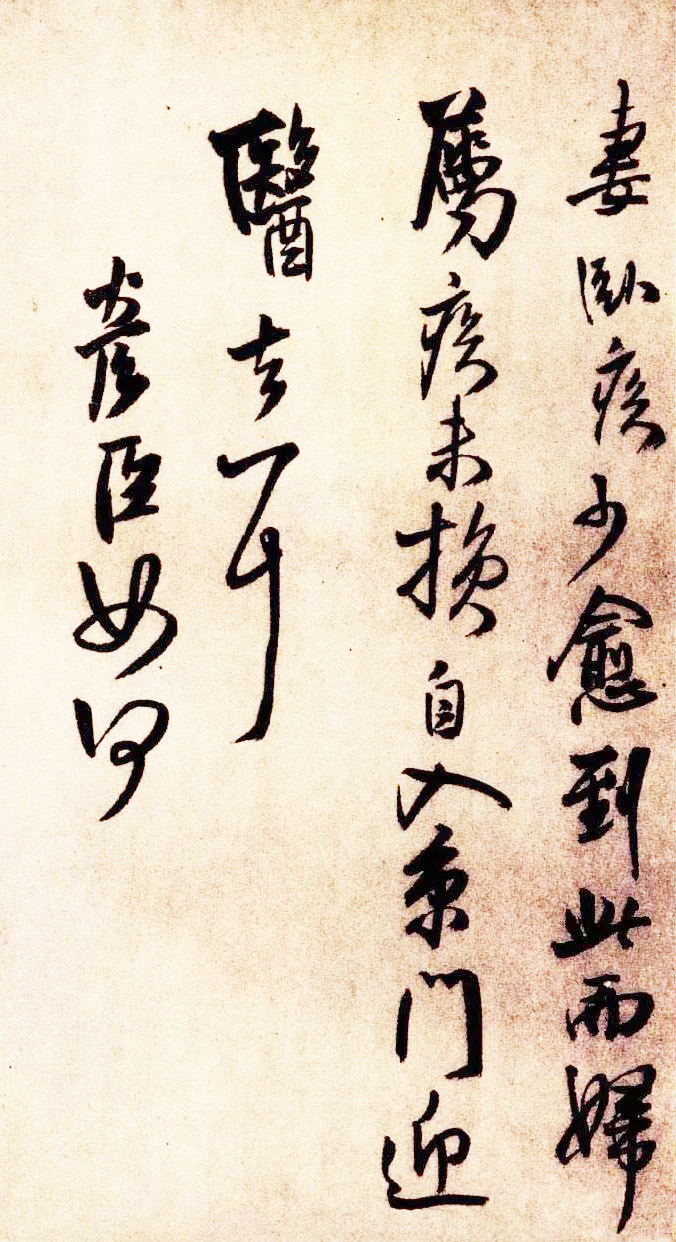 妻臥疾少愈到此兩婦
薦疾未損自入京門迎
醫去耳
臣如何